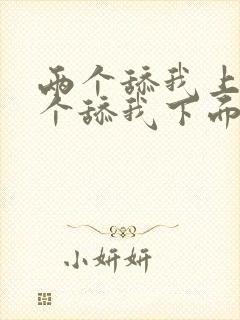 两个舔我上
个舔我下面
小妍妍